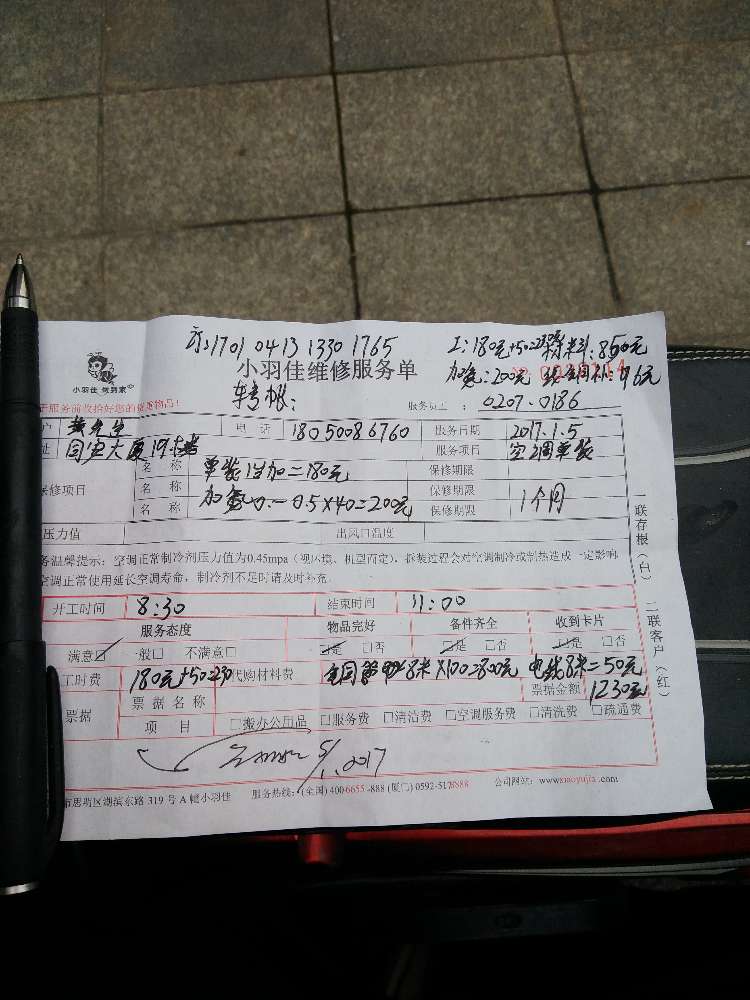 京:1701 0413 1330 1765
工:180元+50=230元 材料:850元
加氨:200元
小羽佳 做到家
小羽佳维修服务单
服务前收拾好您的贵重物品!
服务员工: 0207.0186
电话 18050086760 服务日期 2017.1.5
国宝大厦19 服务项目 空调单装
名 称 单装1台加=180元 保修期限
保修项目 名 称 保修期限 1个月
名 称 0.5×40=200元 保修期限
压力值 出风口温度
务温馨提示:空调正常制冷剂压力值为0.45mpa(视环境、机型而定),拆装过程会对空调制冷或制热造成一定影响
空调正常使用延长空调寿命,制冷剂不足时请及时补充。
开工时间 8:30 结束时间 11:00
服务态度 物品完好 备件齐全 收到卡片
满意☑ 一般□ 不满意□ ☑是 □否 ☑是 □否 ☑是 □否
工时费 180元+50=230 代购材料费 8米×100=800元 电线8米=50元
票据 票据名称 票据金额 1230元
项 目 □搬办公用品 □服务费 □清洁费 □空调服务费 □清洗费 □疏通费
5/1.2017
市思明区湖滨东路 319 号 A 幢小羽佳 服务热线:(全国) 4006655-888 (厦门) 0592-5178888 公司网站:www.xiaoyujia.com
一联存根(白) 二联客户(红)